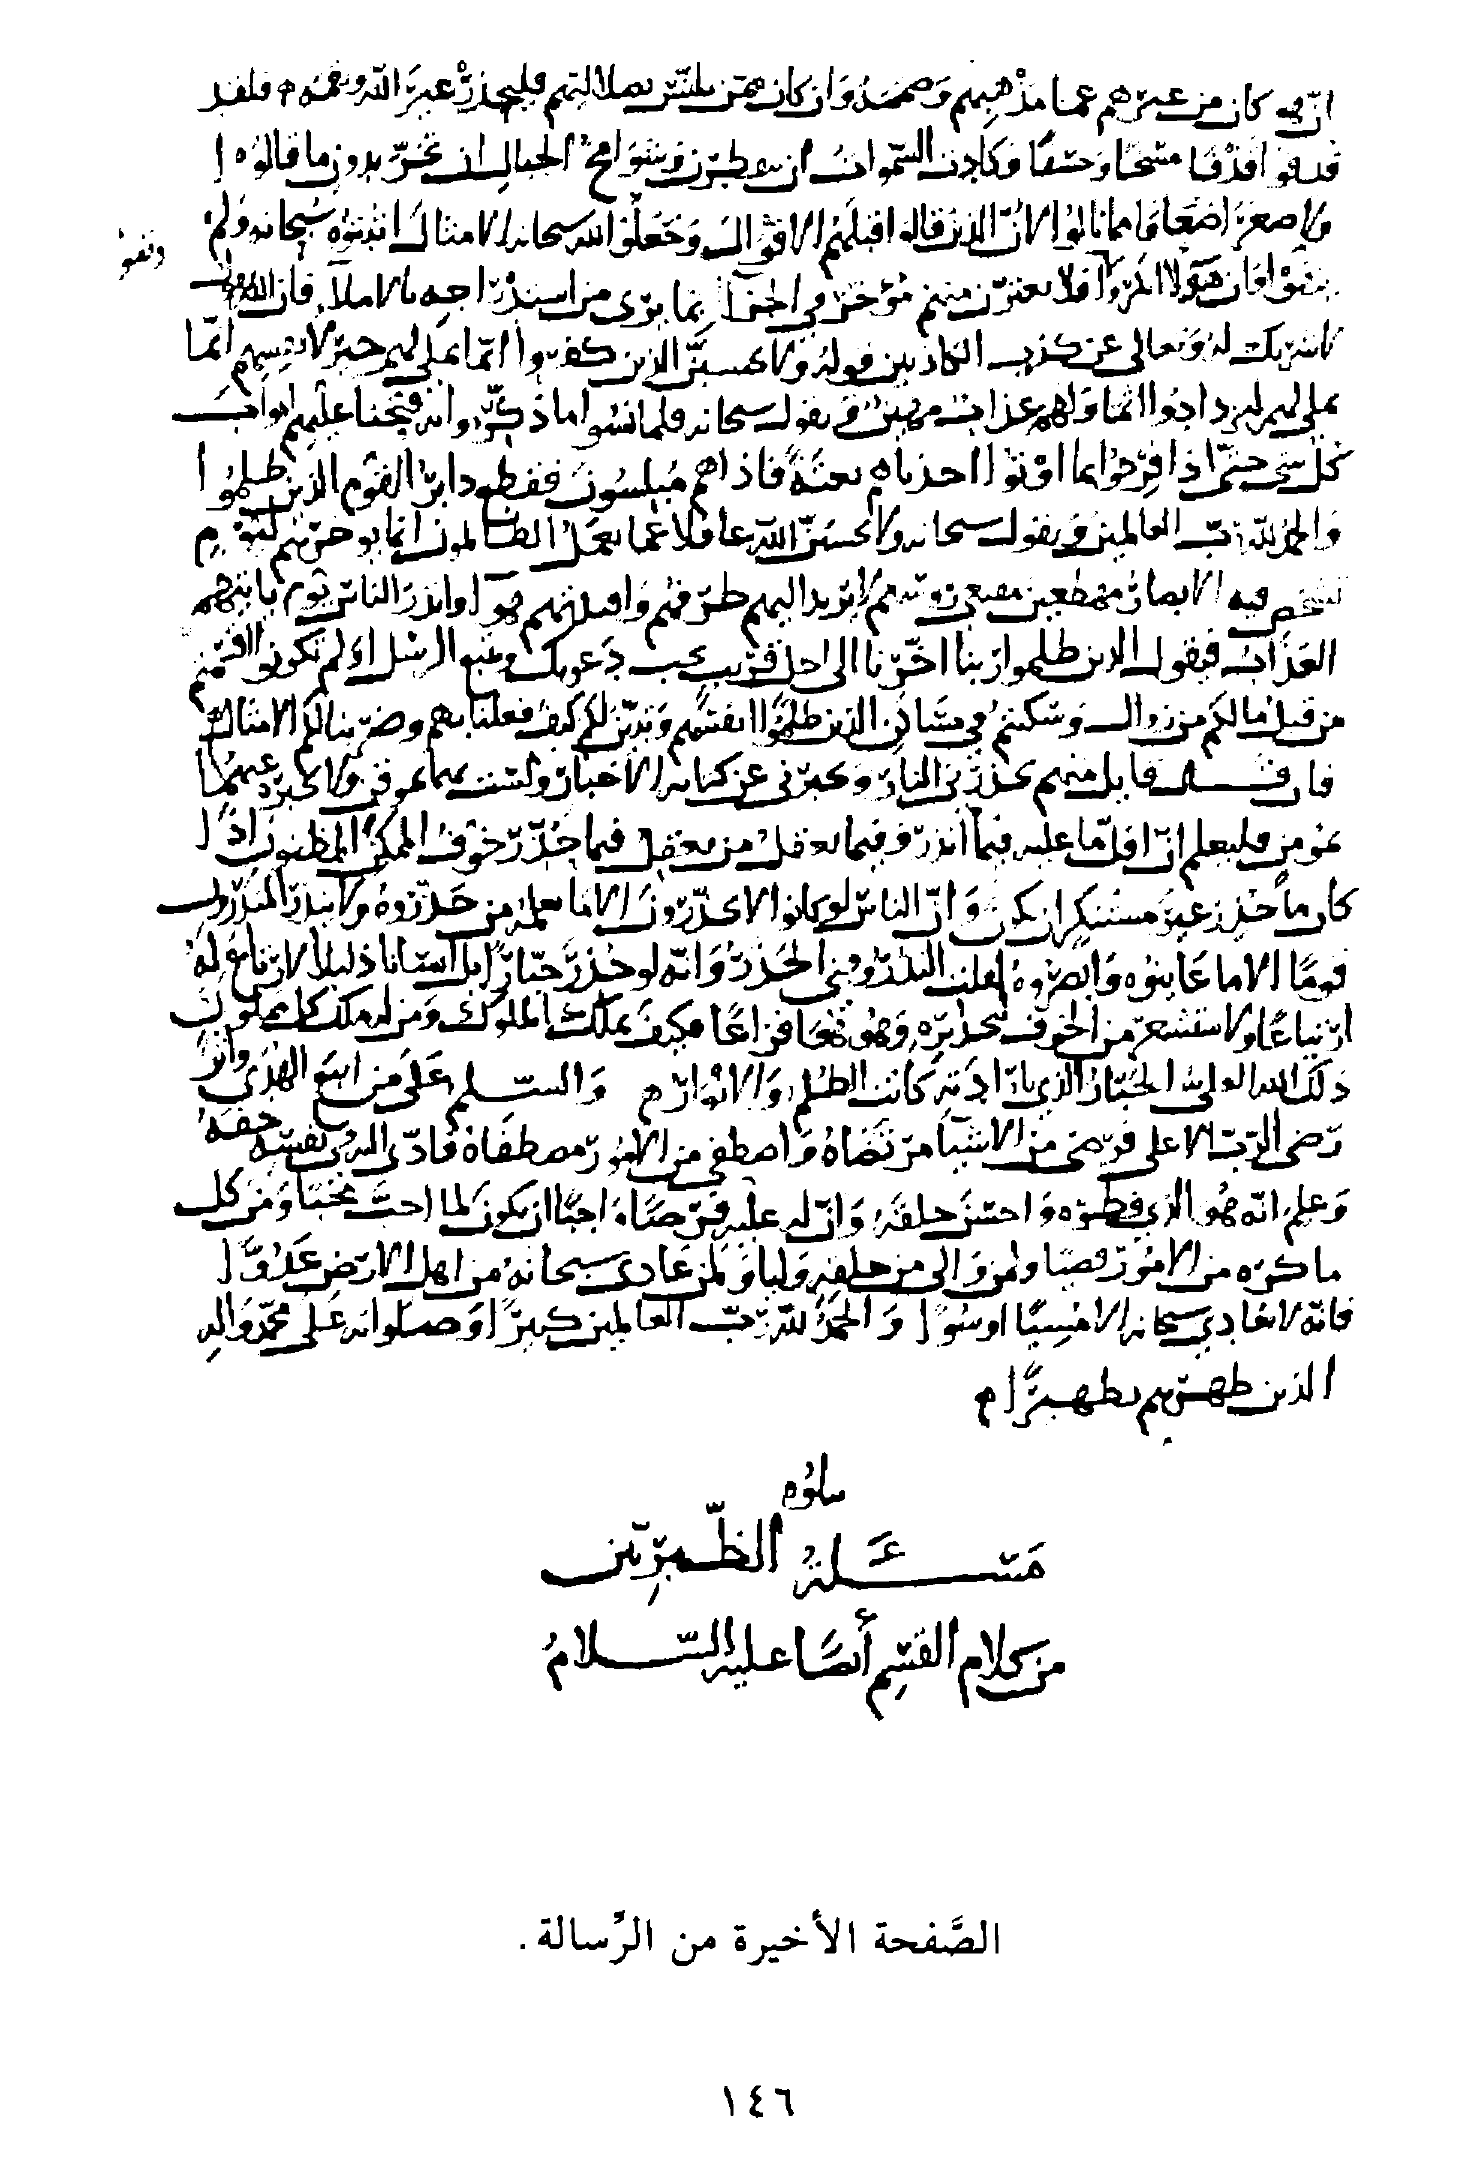 ان في كان من غيرهم عما مذهبهم وصمد وان كان همن بضلالتهم فليحذر غير الله ونقمه فلقد
قذفوا قذفا مسخا وخسفا وكادت السموات ان يتفطرن وشوامخ الجبال ان تخر بدون ما قالوه
ولا صغر اضعافا مما نالوا لان الذين قالوا قبلهم الاقوال وجعلوا لله سبحانه الامثال اثبتوه سبحانه ولم
ونفو
ينفوا فان هؤلاء انكروا فلا يغترن منهم مؤخر في الجزاء بما يرى من استدراجه بالاملاء فان الله
لا شريك له وتعالى عن كذب الكاذبين قوله ولا يحسبن الذين كفروا انما نملي لهم خير لانفسهم انما
نملي لهم ليزدادوا اثما ولهم عذاب مهين ويقول سبحانه فلما نسوا ما ذكروا به فتحنا عليهم ابواب
كل شي حتى اذا فرحوا بما اوتوا اخذناهم بغتة فاذا هم مبلسون فقطع دابر القوم الذين ظلموا
والحمد لله رب العالمين ويقول سبحانه ولا تحسبن الله غافلا عما يعمل الظالمون انما يوخرهم ليوم
تشخص فيه الابصار مهطعين مقنعي روسهم لا يرتد اليهم طرفهم وافئدتهم هوآ وانذر الناس يوم ياتيهم
العذاب فيقول الذين ظلموا ربنا اخرنا الى اجل قريب نجب دعوتك ونتبع الرسل اولم تكونوا اقسمتم
من قبل ما لكم من زوال وسكنتم في مساكن الذين ظلموا انفسهم وتبين لكم كيف فعلنا بهم وضربنا لكم الامثال
فان قال قايل منهم يحذرني النار ويخبرني عن كتابه الاخبار ولست بهما بموقن ولا بخبر عنهما
بمومن فليعلم ان اقل ما عليه فيما أنذر وفيما يعقل من يعقل فيما حذر خوف الممكن المظنون اذا
كان ما حذر غير مستنكر ان يكون وان الناس لو كانوا لا يحذرون الا ما يعلمه من حذروه ولا ينذر المنذرون
قوما الا ما عاينوه وابصروه لعلت النذر وفني الحذر وانه لو حذر جبارا بل انسانا ذليلا لارتاع له
ارتياعا ولاستشعر من الخوف لتحذيره وهو قعا فزاعا فكيف بملك الملوك ومن له ملك كل مملوك
ذلك الله العلي الجبار الذي بارادته كانت الظلم والانوار م والسلم على من اتبع الهدى واثر
رضى الرب الاعلى فرضي من الاشيا مرتضاه واصطفى من الامور مصطفاه فادى الله في نفسه حقه
وعلم انه هو الذي فطره واحسن خلقه وان له عليه فرضا واجبا ان يكون لما احب محبا ومن كل
ما كره من الامور قصيا ولمن والى من خلقه وليا ولمن عادى سبحانه من اهل الارض عدوا
فانه لا يعادي سبحانه الا مسيا او سوا والحمد لله رب العالمين كبيرا وصلواته على محمد واله
الذين طهرهم تطهيرا م
يتلوه
مسئلة الطبريين
من كلام القسم أيضا عليه السلام
الصَّفحة الأخيرة من الرِّسالة.
١٤٦